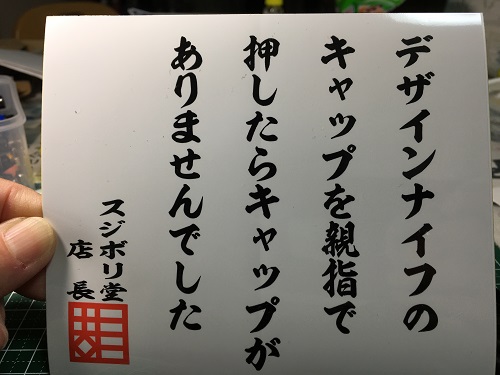 デザインナイフの
キャップを親指で
押したらキャップが
ありませんでした
スジボリ堂
店長